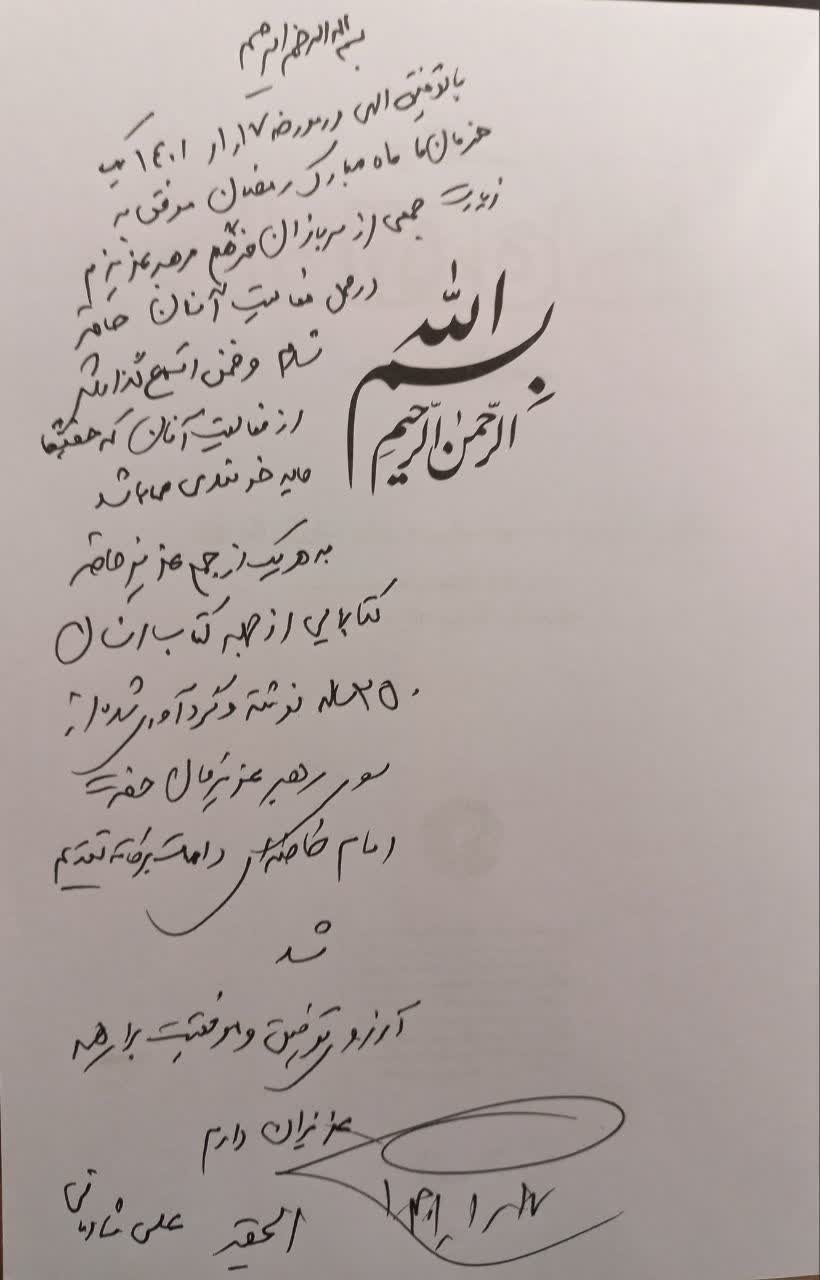 بسم الله الرحمن الرحیم
با توفیق الهی در مورخه ۱۷ر۱ر۱۴۰۱ که
همزمان با ماه مبارک رمضان موفق به
زیارت جمعی از سربازان عزیزم
در محل فعالیت آنان حاضر
شدم و ضمن استماع گزارشی
از فعالیت آنان که حقیقتا
مایه خرسندی میباشد
بسم الله
الرحمن الرحیم
به هر یک از جمع عزیز حاضر
کتابهایی از جمله کتاب انسان
۲۵۰ ساله نوشته و گردآوری شده از
سوی رهبر عزیزمان حضرت
امام خامنه‌ای دامت برکاته تقدیم
شد
آرزوی توفیق و موفقیت برای همه
عزیزان دارم
الحقیر